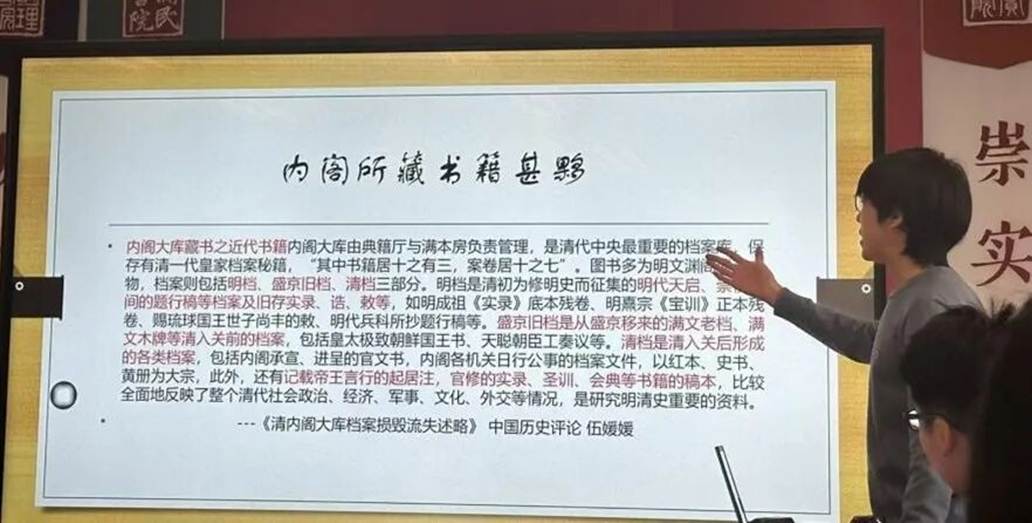 理
民
内阁所藏书籍甚夥
内阁大库藏书之近代书籍内阁大库由典籍厅与满本房负责管理，是清代中央最重要的档案库，保
存有清一代皇家档案秘籍，“其中书籍居十之有三，案卷居十之七”。图书多为明文渊
物，档案则包括明档、盛京旧档、清档三部分。明档是清初为修明史而征集的明代天启、崇
间的题行稿等档案及旧存实录、诰、敕等，如明成祖《实录》底本残卷、明熹宗《宝训》正本残
卷、赐琉球国王世子尚丰的敕、明代兵科所抄题行稿等。盛京旧档是从盛京移来的满文老档、满
文木牌等清入关前的档案，包括皇太极致朝鲜国王书、天聪朝臣工奏议等。清档是清入关后形成
的各类档案，包括内阁承宣、进呈的官文书，内阁各机关日行公事的档案文件，以红本、史书、
黄册为大宗，此外，还有记载帝王言行的起居注，官修的实录、圣训、会典等书籍的稿本，比较
全面地反映了整个清代社会政治、经济、军事、文化、外交等情况，是研究明清史重要的资料。
---《清内阁大库档案损毁流失述略》 中国历史评论 伍媛媛
崇
实